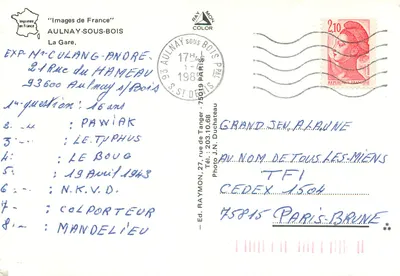 "Images de France"
AULNAY-SOUS-BOIS
La Gare,
EXP. Mr CULANG-ANDRE-
21 Rue du HAMEAU
93600 Aulnay s/Bois
1ère question: 16 ans
2. " PAWIAK
3. " LE TYPHUS
4 " LE BOUG
5. 19 Avril 1943
6 - N.K.V.D.
7 - COLPORTEUR
8 - MANDELIEU
RAYMON
COLOR
— Ed. RAYMON, 27, rue de Tanger - 75019 PARIS
Tél.: 203.10.68
Photo J.N. Duchateau
93 AULNAY sous BOIS
S ST DENIS
2,10
GRAND JEU A LA UNE
AU NOM DE TOUS LES MIENS
TF1
CEDEX 1504
75815 PARIS-BRUNE